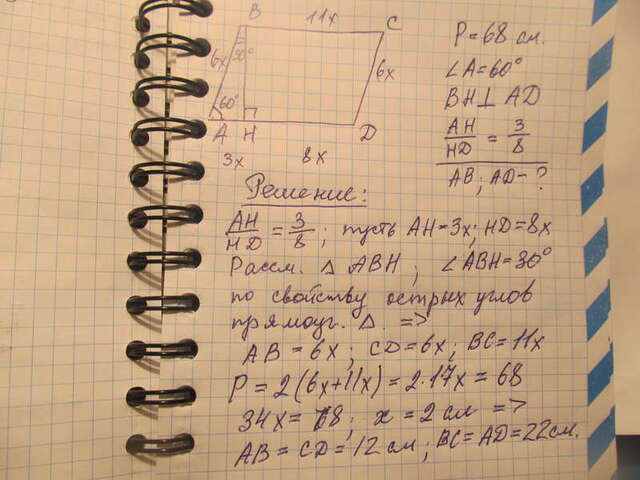 B 11x C
6x 30° 6x
60°
A H D
3x 8x
P = 68 см.
∠A = 60°
BH ⊥ AD
AH/HD = 3/8
AB; AD - ?
Решение:
AH/HD = 3/8; пусть AH = 3x; HD = 8x
Рассм. △ ABH; ∠ABH = 30°
по свойству острых углов
прямоуг. △. =>
AB = 6x; CD = 6x; BC = 11x
P = 2(6x + 11x) = 2·17x = 68
34x = 68; x = 2 см =>
AB = CD = 12 см; BC = AD = 22 см.